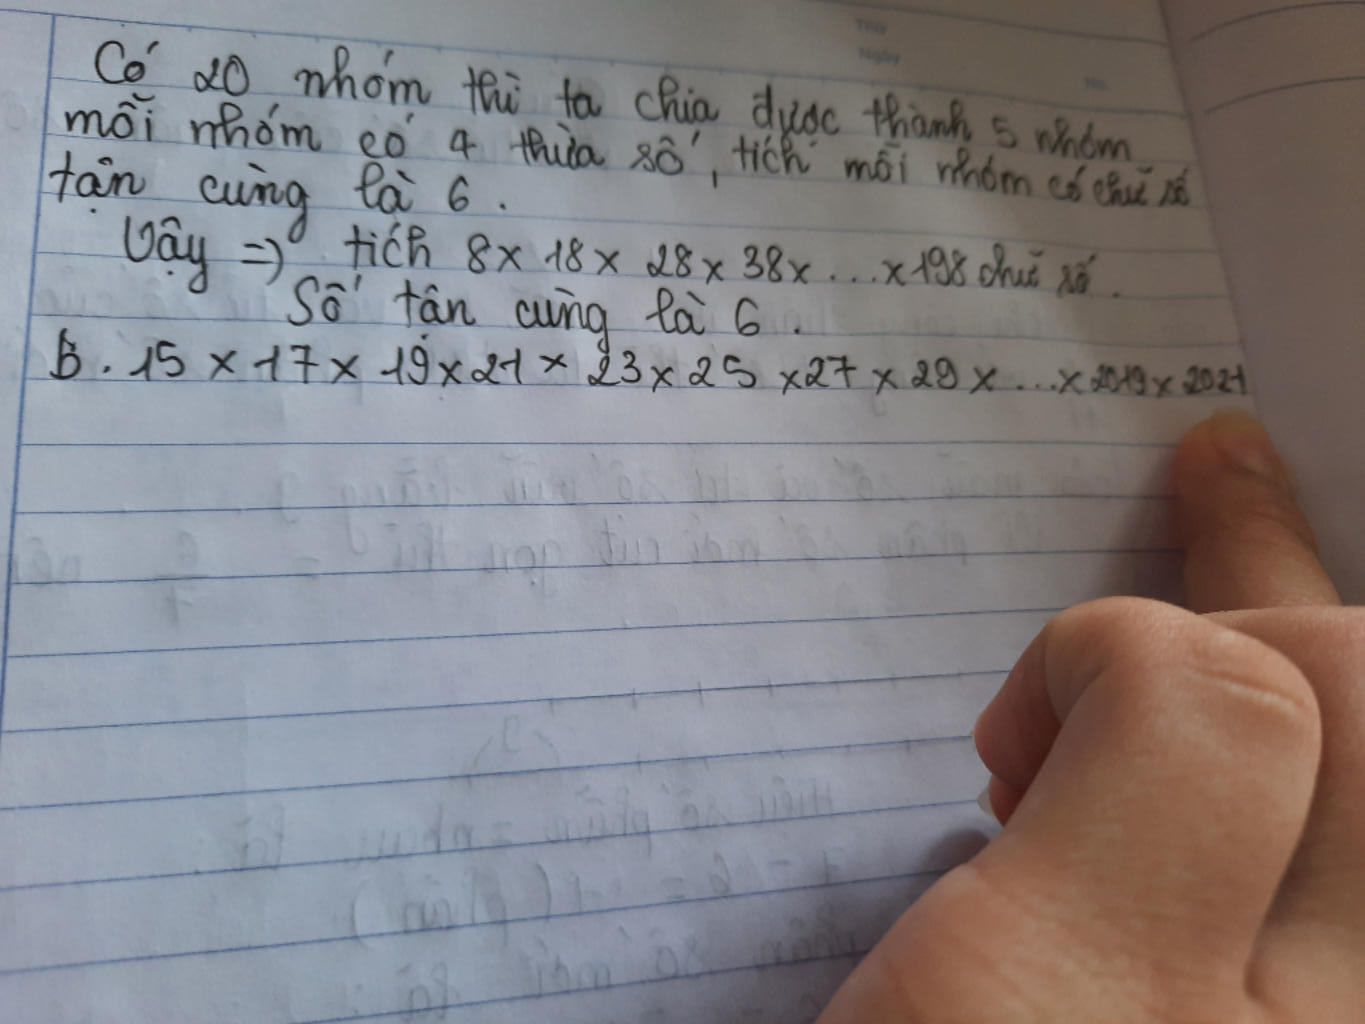 Có 20 nhóm thì ta chia được thành 5 nhóm
mỗi nhóm có 4 thừa số, tích mỗi nhóm có chữ số
tận cùng là 6.
Vậy => tích 8 x 18 x 28 x 38 x ... x 198 chữ số.
Số tận cùng là 6.
B. 15 x 17 x 19 x 21 x 23 x 25 x 27 x 29 x ... x 2019 x 2021